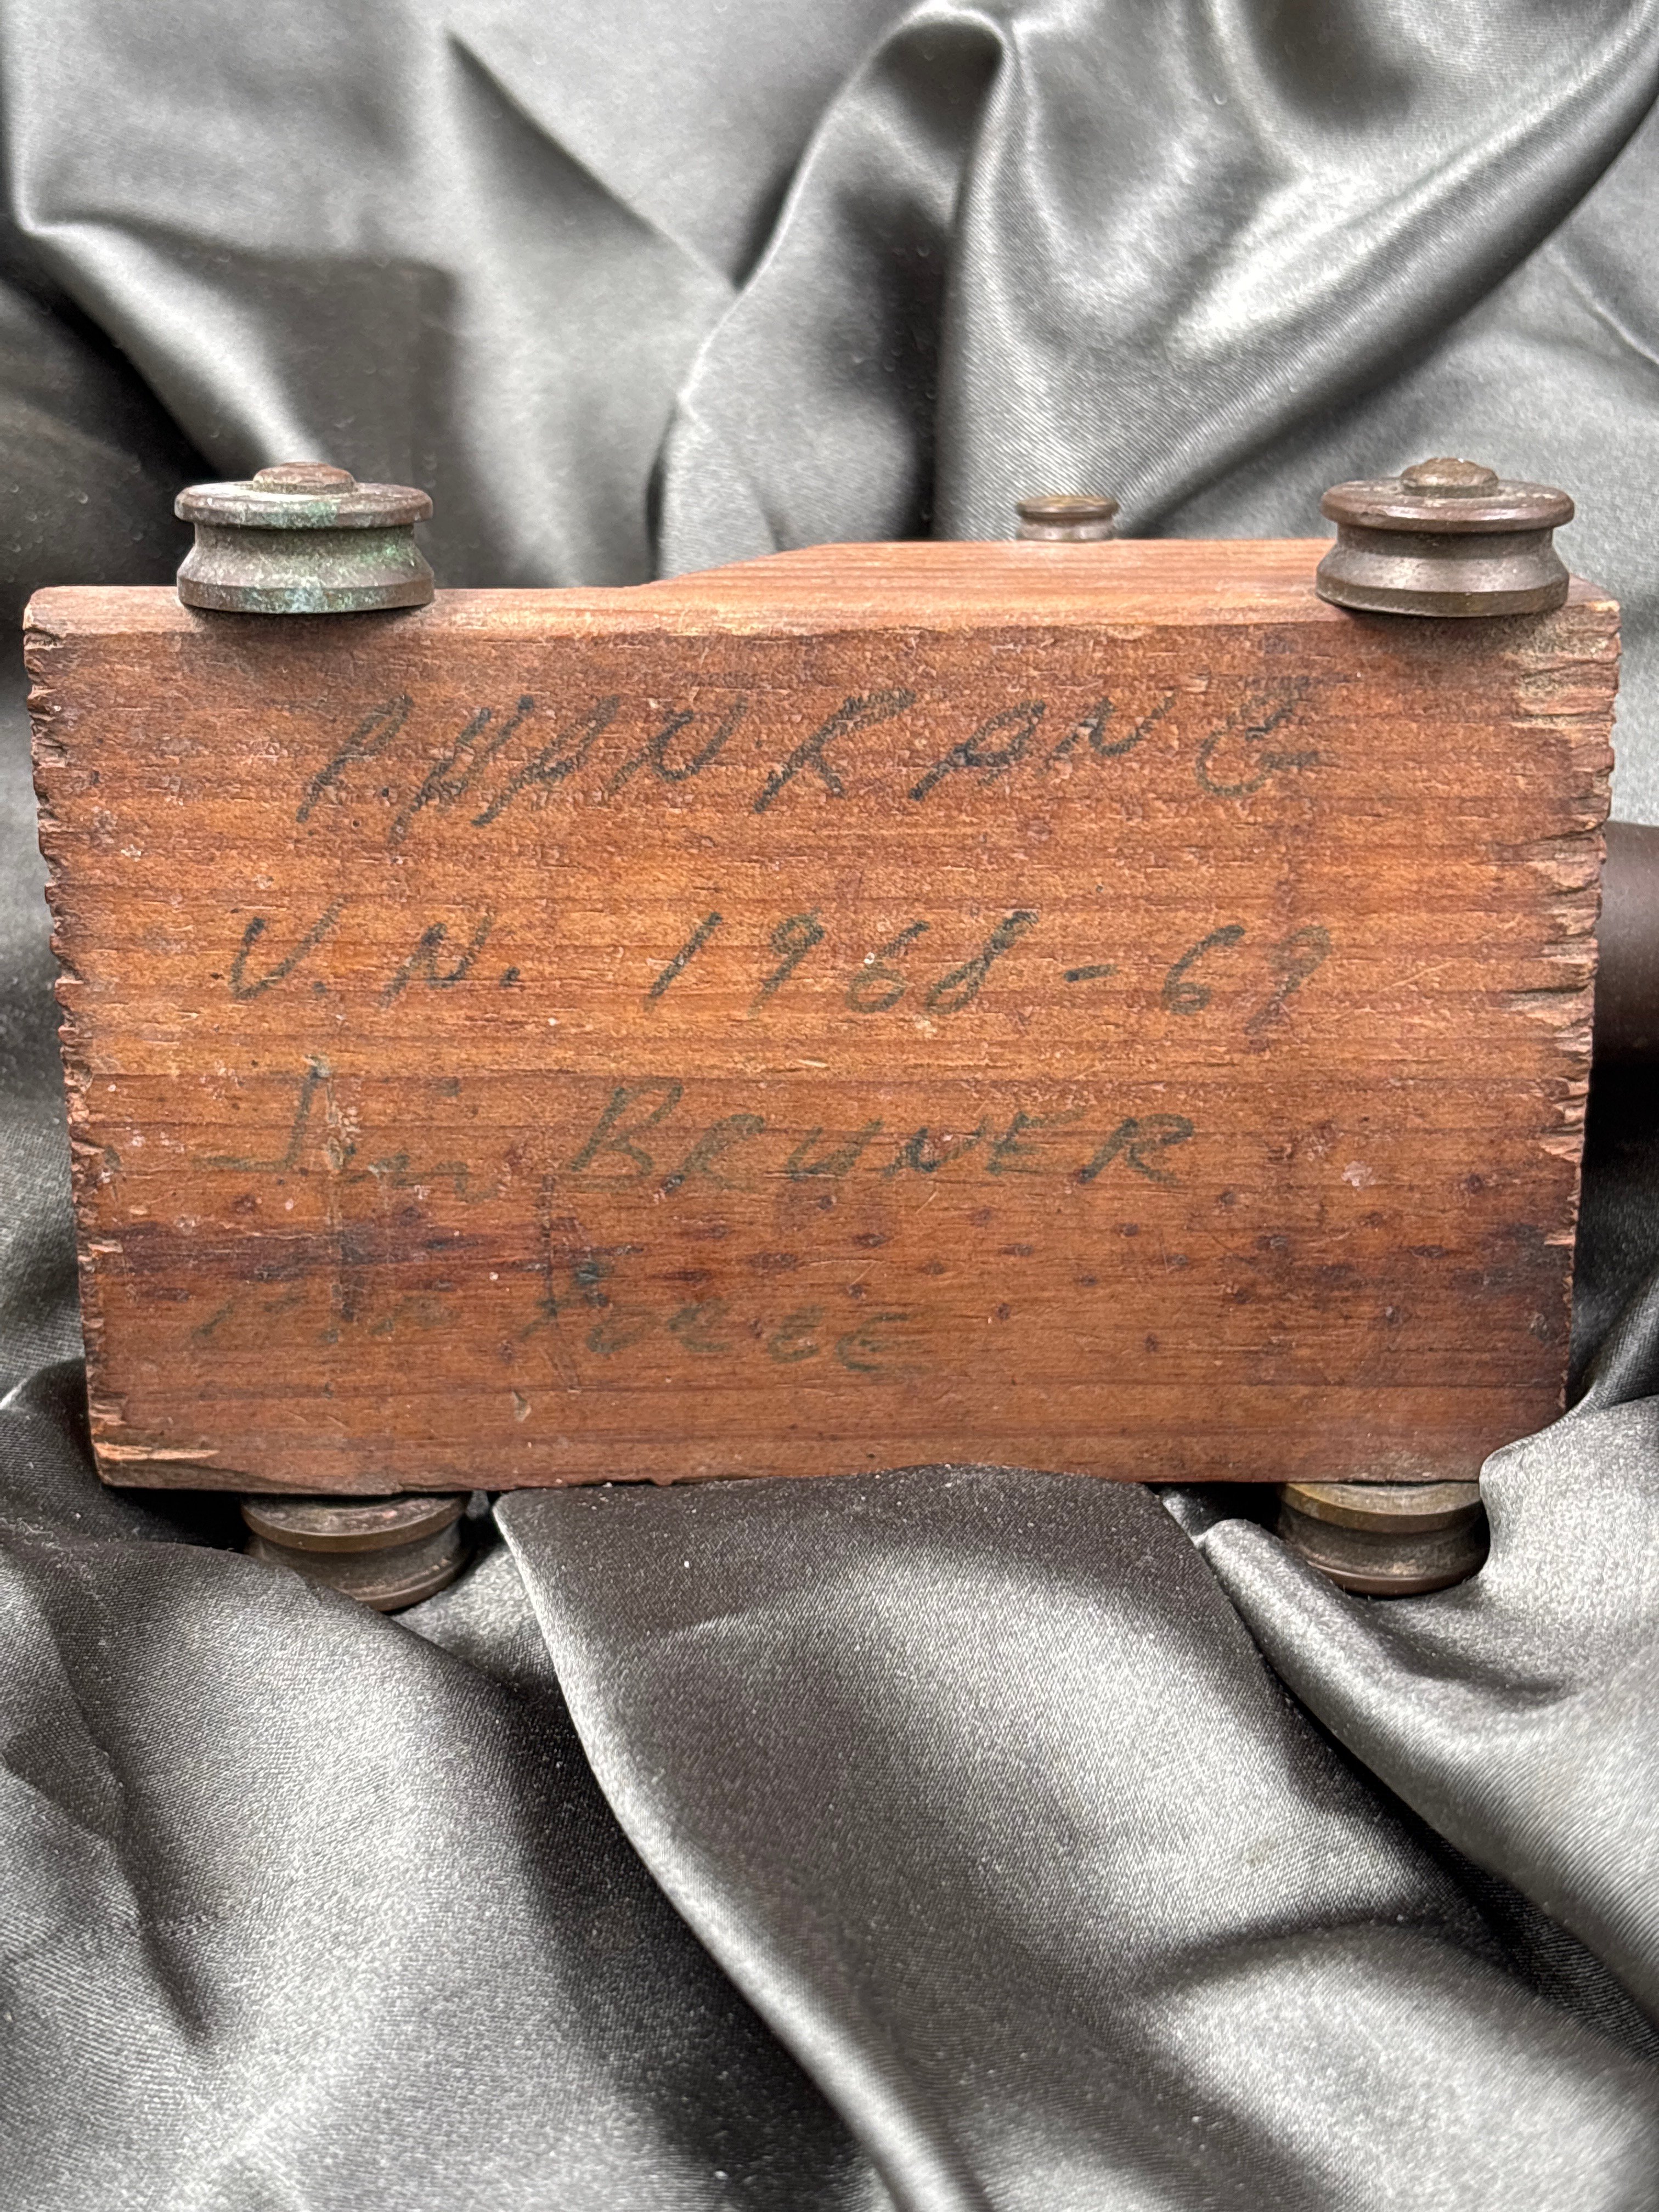 PHAN RANG
V.N. 1968-69
Jim BRUNER
AIR FORCE